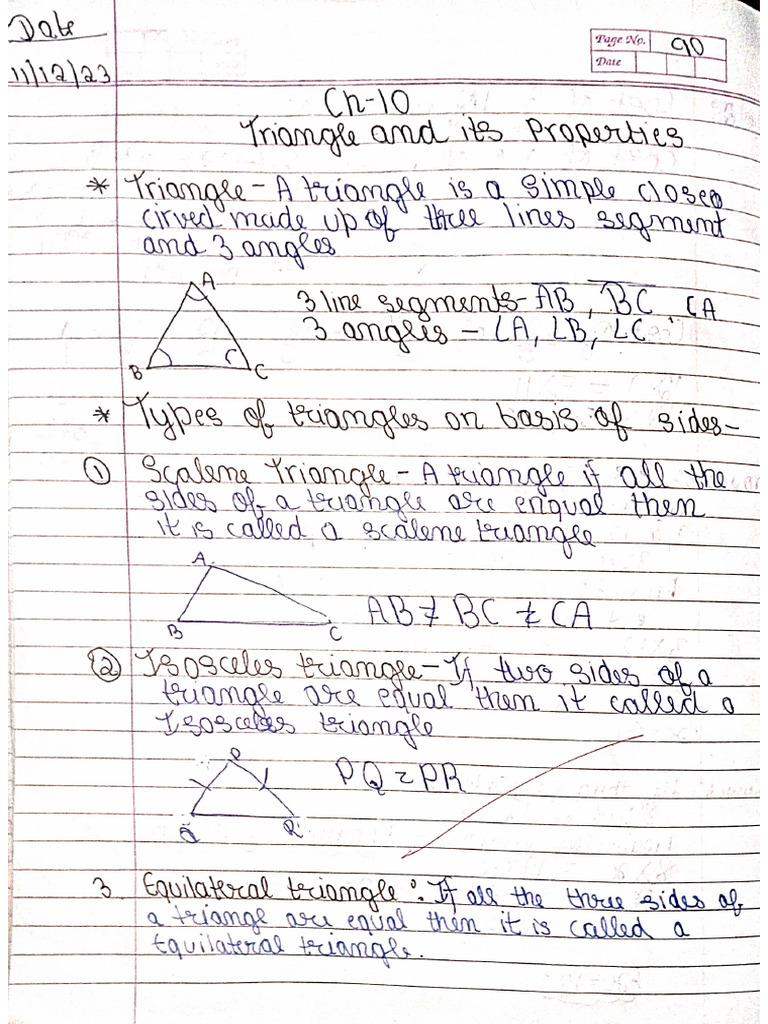 Date
11/12/23
Page No. 90
Date
Ch-10
Triangle and its Properties
* Triangle - A triangle is a simple closed
cirved made up of three lines segment
and 3 angles
A
B
C
3 line segments - AB, BC, CA
3 angles - ∠A, ∠B, ∠C.
* Types of triangles on basis of sides -
① Scalene Triangle - A triangle if all the
sides of a triangle are enqual then
it is called a scalene triangle
A
B
C
AB ≠ BC ≠ CA
② Isosceles triangle - If two sides of a
triangle are equal then it called a
Isosceles triangle
P
Q
R
PQ = PR
3 Equilateral triangle : If all the three sides of
a triange are equal then it is called a
Equilateral triangle.